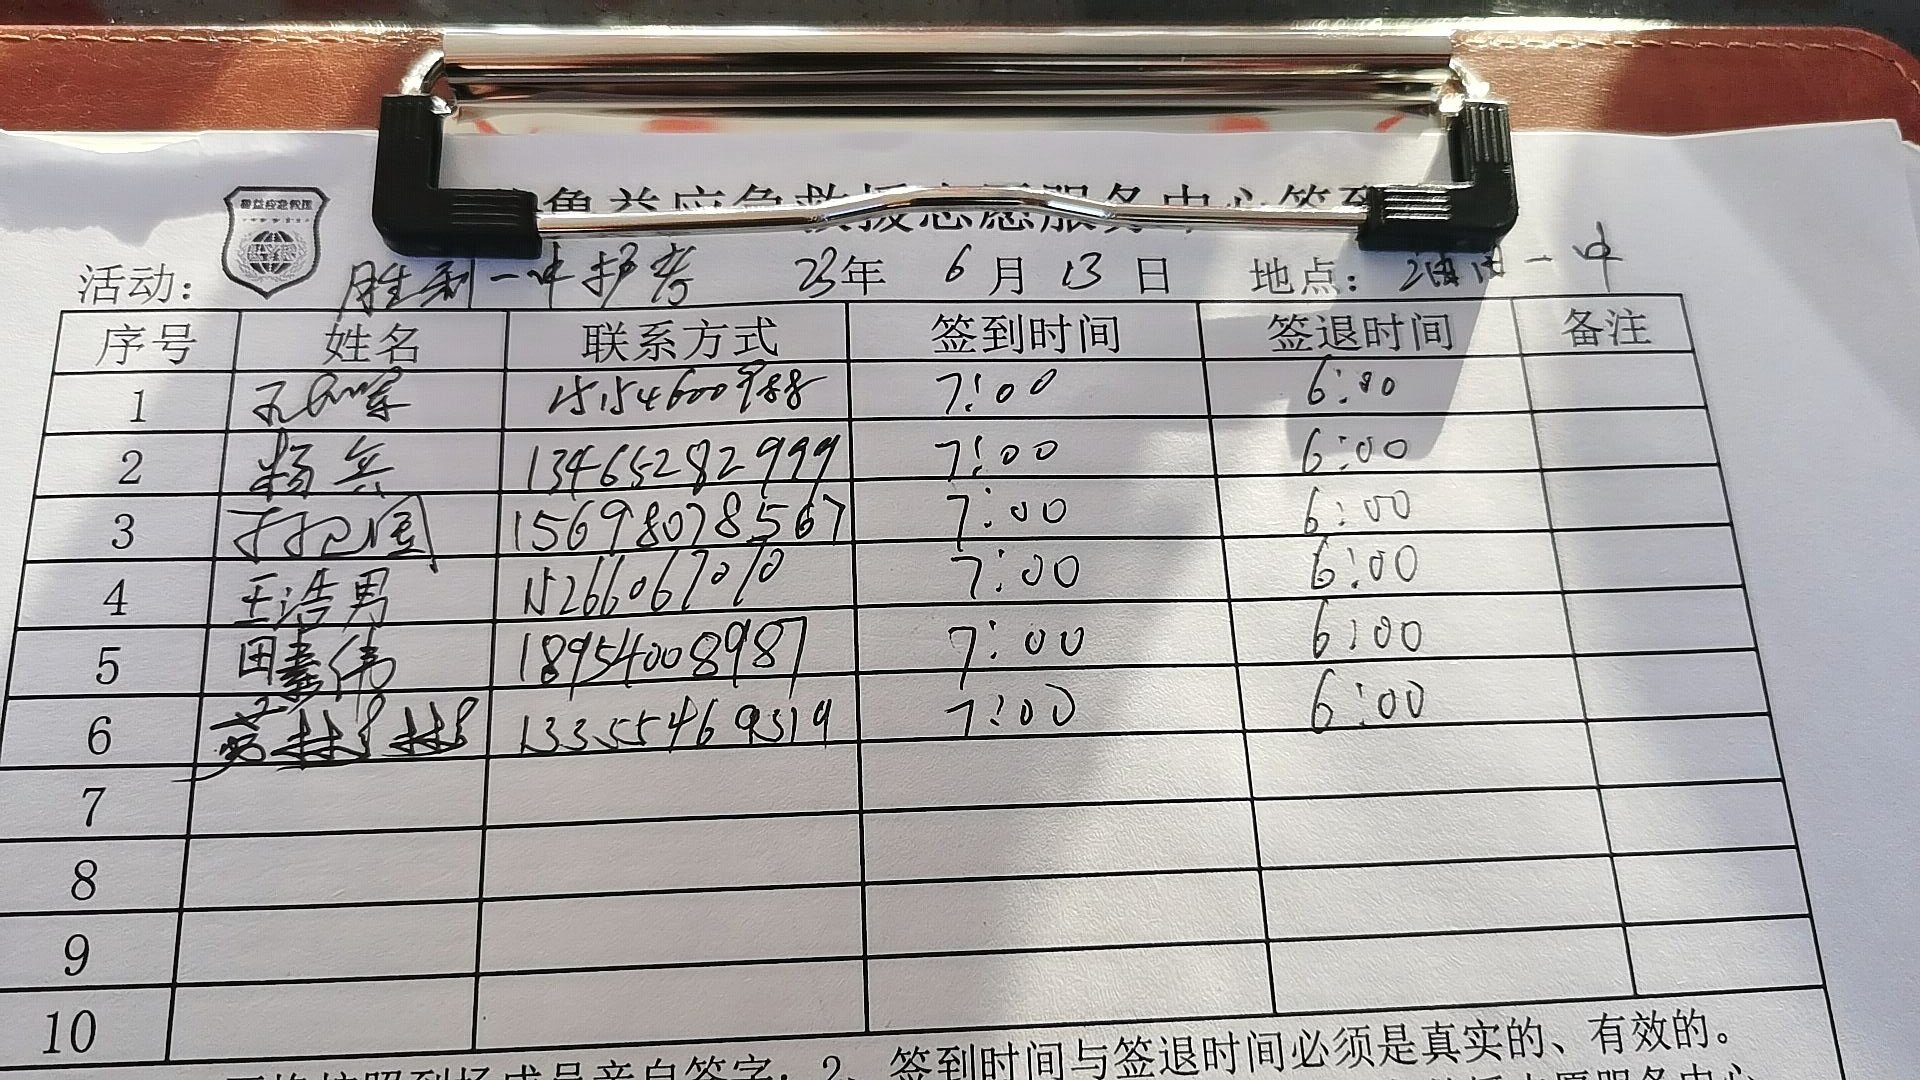 鲁益应急救援志愿服务中心签到
鲁益应急救援
活动： 胜利一中护考 23年 6月13日 地点： 一中
序号 姓名 联系方式 签到时间 签退时间 备注
1 15154600988 7:00 6:00
2 杨兵 13465282999 7:00 6:00
3 15698078567 7:00 6:00
4 王浩男 15266067070 7:00 6:00
5 田嘉伟 18954008987 7:00 6:00
6 13355469319 7:00 6:00
7
8
9
10
到场成员亲自签字；2、签到时间与签退时间必须是真实的、有效的。
志愿服务中心